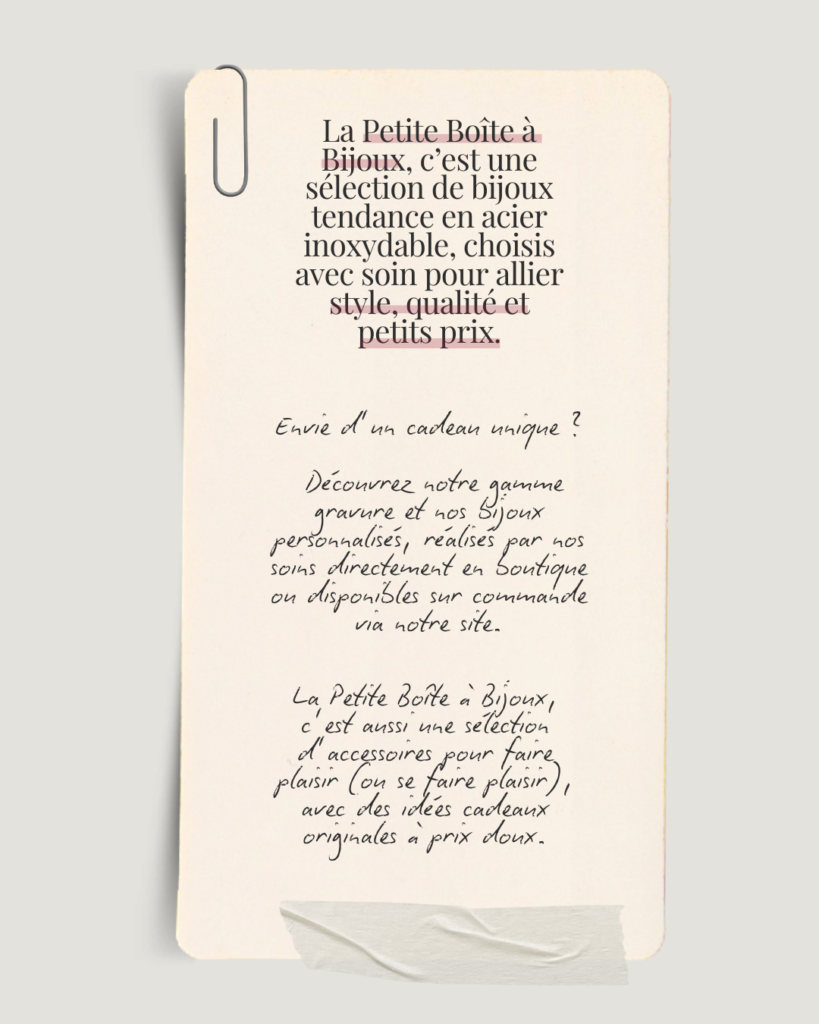 La Petite Boîte à
Bijoux, c’est une
sélection de bijoux
tendance en acier
inoxydable, choisis
avec soin pour allier
style, qualité et
petits prix.
Envie d'un cadeau unique ?
Découvrez notre gamme
gravure et nos bijoux
personnalisés, réalisés par nos
soins directement en boutique
ou disponibles sur commande
via notre site.
La Petite Boîte à Bijoux,
c'est aussi une sélection
d'accessoires pour faire
plaisir (ou se faire plaisir),
avec des idées cadeaux
originales à prix doux.